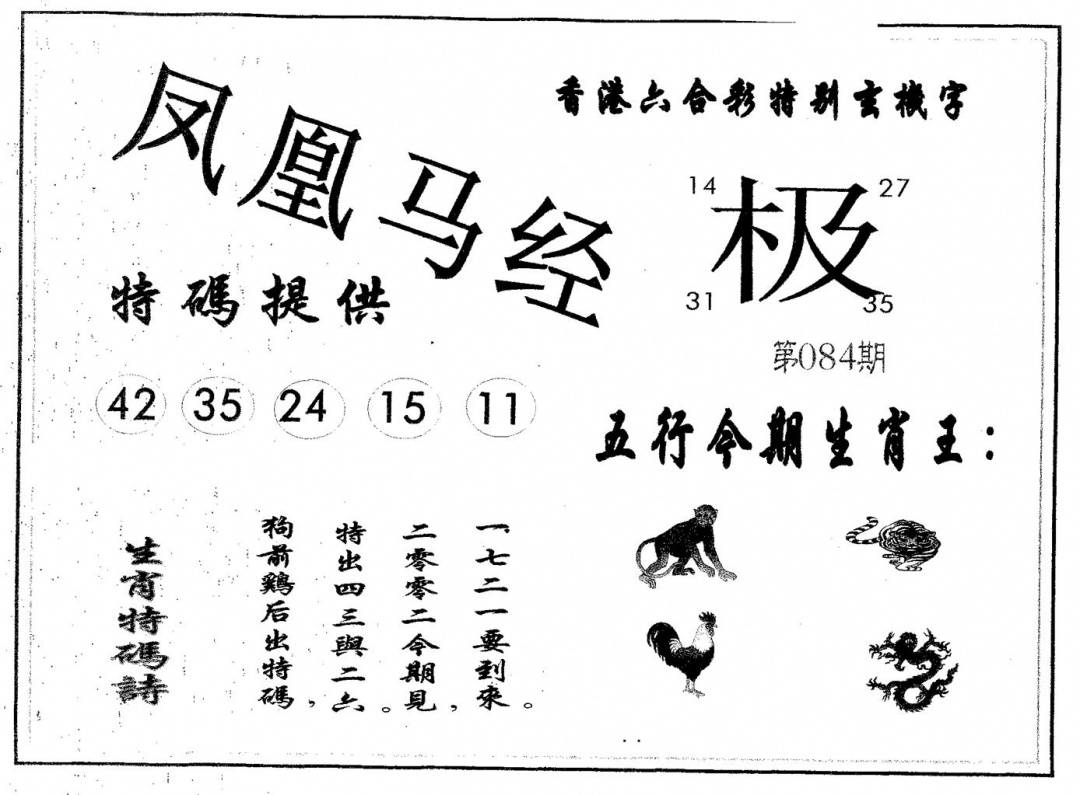 凤凰马经
香港六合彩特别玄機字
14
27
极
31
35
第084期
特碼提供
42 35 24 15 11
五行今期生肖王：
生肖特碼詩
狗前鷄后出特碼，
特出四三與二六。
二零零二今期見，
一七二一要到來。